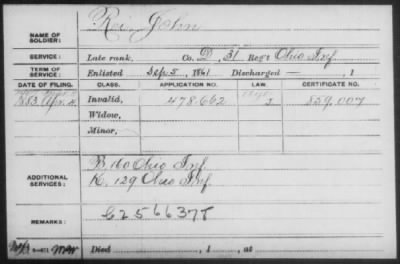 NAME OF SOLDIER: John
SERVICE: Late rank, Co. D, 31 Reg't Ohio Inf
TERM OF SERVICE: Enlisted Sep. 5, 1861 Discharged — , 1
DATE OF FILING. CLASS. APPLICATION NO. LAW. CERTIFICATE NO.
1883 Apr. 4 Invalid, 478.662 859.007
Widow,
Minor,
ADDITIONAL SERVICES: B 60 Ohio Inf
K. 129 Ohio Inf.
REMARKS: C2566378
Died , 1 , at